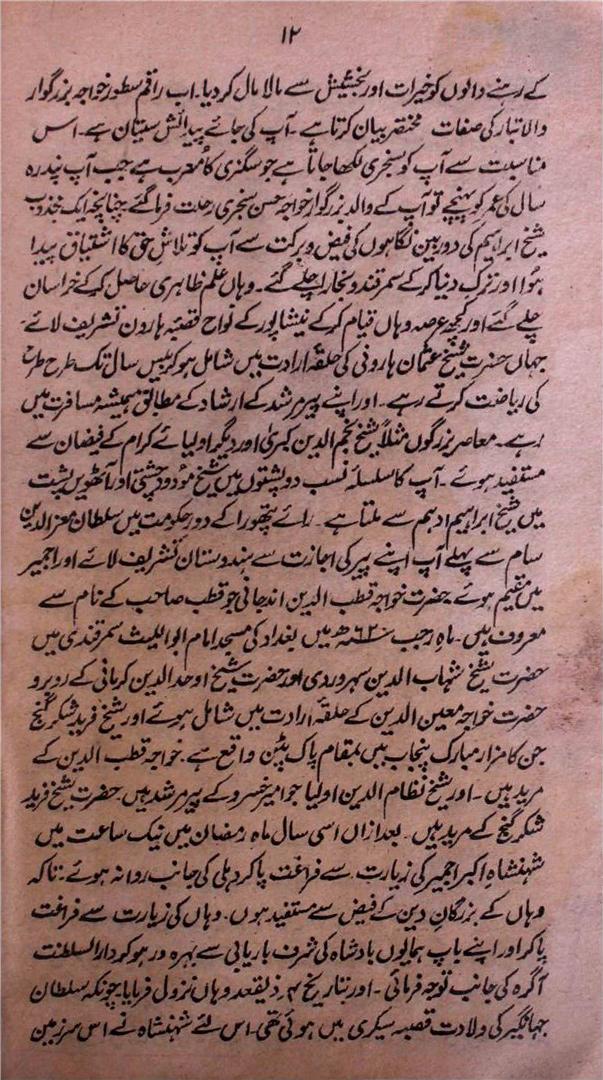 ۱۲
کے رہنے والوں کو خیرات اور بخشش سے مالا مال کر دیا۔ اب راقم سطور خواجہ بزرگوار
والا تبار کی صفات مختصر بیان کرتا ہے۔ آپ کی جائے پیدائش سیستان ہے۔ اس
مناسبت سے آپ کو سنجری لکھا جاتا ہے جو سگزی کا معرب ہے جب آپ پندرہ
سال کی عمر کو پہنچے تو آپ کے والد بزرگوار خواجہ حسن سنجری رحلت فرما گئے۔ چنانچہ ایک مجذوب
شیخ ابراہیم کی دوربین نگاہوں کی فیض و برکت سے آپ کو تلاش حق کا اشتیاق پیدا
ہوا اور ترک دنیا کر کے سمرقند و بخارا چلے گئے۔ وہاں علم ظاہری حاصل کر کے خراسان
چلے گئے اور کچھ عرصہ وہاں قیام کر کے نیشاپور کے نواح قصبہ ہارون تشریف لائے۔
جہاں حضرت شیخ عثمان ہارونی کی حلقہ ارادت میں شامل ہو کر بیس سال تک طرح طرح
کی ریاضت کرتے رہے۔ اور اپنے پیر مرشد کے ارشاد کے مطابق ہمیشہ مسافرت میں
رہے۔ معاصر بزرگوں مثلاً شیخ نجم الدین کبریٰ اور دیگر اولیائے کرام کے فیضان سے
مستفید ہوئے۔ آپ کا سلسلہ نسب دو پشتوں میں شیخ مودود چشتی اور آٹھویں پشت
میں شیخ ابراہیم ادہم سے ملتا ہے۔ رائے پتھورا کے دور حکومت میں سلطان معز الدین
سام سے پہلے آپ اپنے پیر کی اجازت سے ہندوستان تشریف لائے اور اجمیر
میں مقیم ہوئے حضرت خواجہ قطب الدین اندجانی جو قطب صاحب کے نام سے
معروف ہیں۔ ماہ رجب ھ میں بغداد کی مسجد امام ابو اللیث سمرقندی میں
حضرت شیخ شہاب الدین سہروردی اور حضرت شیخ اوحد الدین کرمانی کے روبرو
حضرت خواجہ معین الدین کے حلقہ ارادت میں شامل ہوئے اور شیخ فرید شکر گنج
جن کا مزار مبارک پنجاب میں بمقام پاک پٹن واقع ہے۔ خواجہ قطب الدین کے
مرید ہیں۔ اور شیخ نظام الدین اولیا جو امیر خسرو کے پیر مرشد ہیں۔ حضرت شیخ فرید
شکر گنج کے مرید ہیں۔ بعد ازاں اسی سال ماہ رمضان میں نیک ساعت میں
شہنشاہ اکبر اجمیر کی زیارت سے فراغت پا کر دہلی کی جانب روانہ ہوئے۔ تاکہ
وہاں کے بزرگان دین کے فیض سے مستفید ہوں۔ وہاں کی زیارت سے فراغت
پا کر اور اپنے باپ ہمایوں بادشاہ کی شرف باریابی سے بہرہ ور ہو کر دار السلطنت
آگرہ کی جانب توجہ فرمائی۔ اور بتاریخ ذیقعد وہاں نزول فرمایا۔ چونکہ سلطان
جہانگیر کی ولادت قصبہ سیکری میں ہوئی تھی۔ اس لئے شہنشاہ نے اس سرزمین